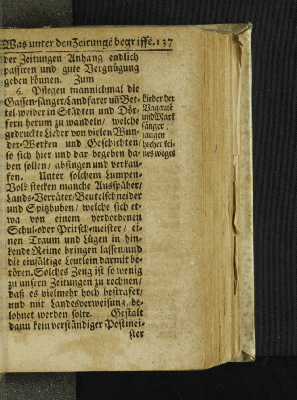 Was unter den Zeitungē begriffē. 137
der Zeitungen Anhang endlich
passiren und gute Vergnügung
geben können. Zum
6. Pflegen mannichmal die
Gassen-sänger/Landfarer uñ Bet-
tel-weiber in Städten und Dör-
fern herum zu wandeln/ welche
gedruckte Lieder von vielen Wun-
der-Werken und Geschichten/
so sich hier und dar begeben ha-
ben sollen/ absingen und verkau-
fen. Unter solchem Lumpen-
Volk stecken manche Ausspäher/
Lands-Verräter/Beutelschneider
und Spitzbuben/ welche sich et-
wa von einem verdorbenen
Schul-oder Pritsch-meister/ ei-
nen Traum und Lügen in hin-
kende Reime bringen lassen/und
die einfältige Leutlein darmit be-
tören. Solches Zeug ist so wenig
zu unsern Zeitungen zu rechnen/
daß es vielmehr hoch bestrafet/
und mit Landesverweisung be-
lohnet werden solte. Gestalt
dann kein verständiger Postmei-
ster
Lieder der
und Markt
sänger/
taugen
hieher kei-
nes weges